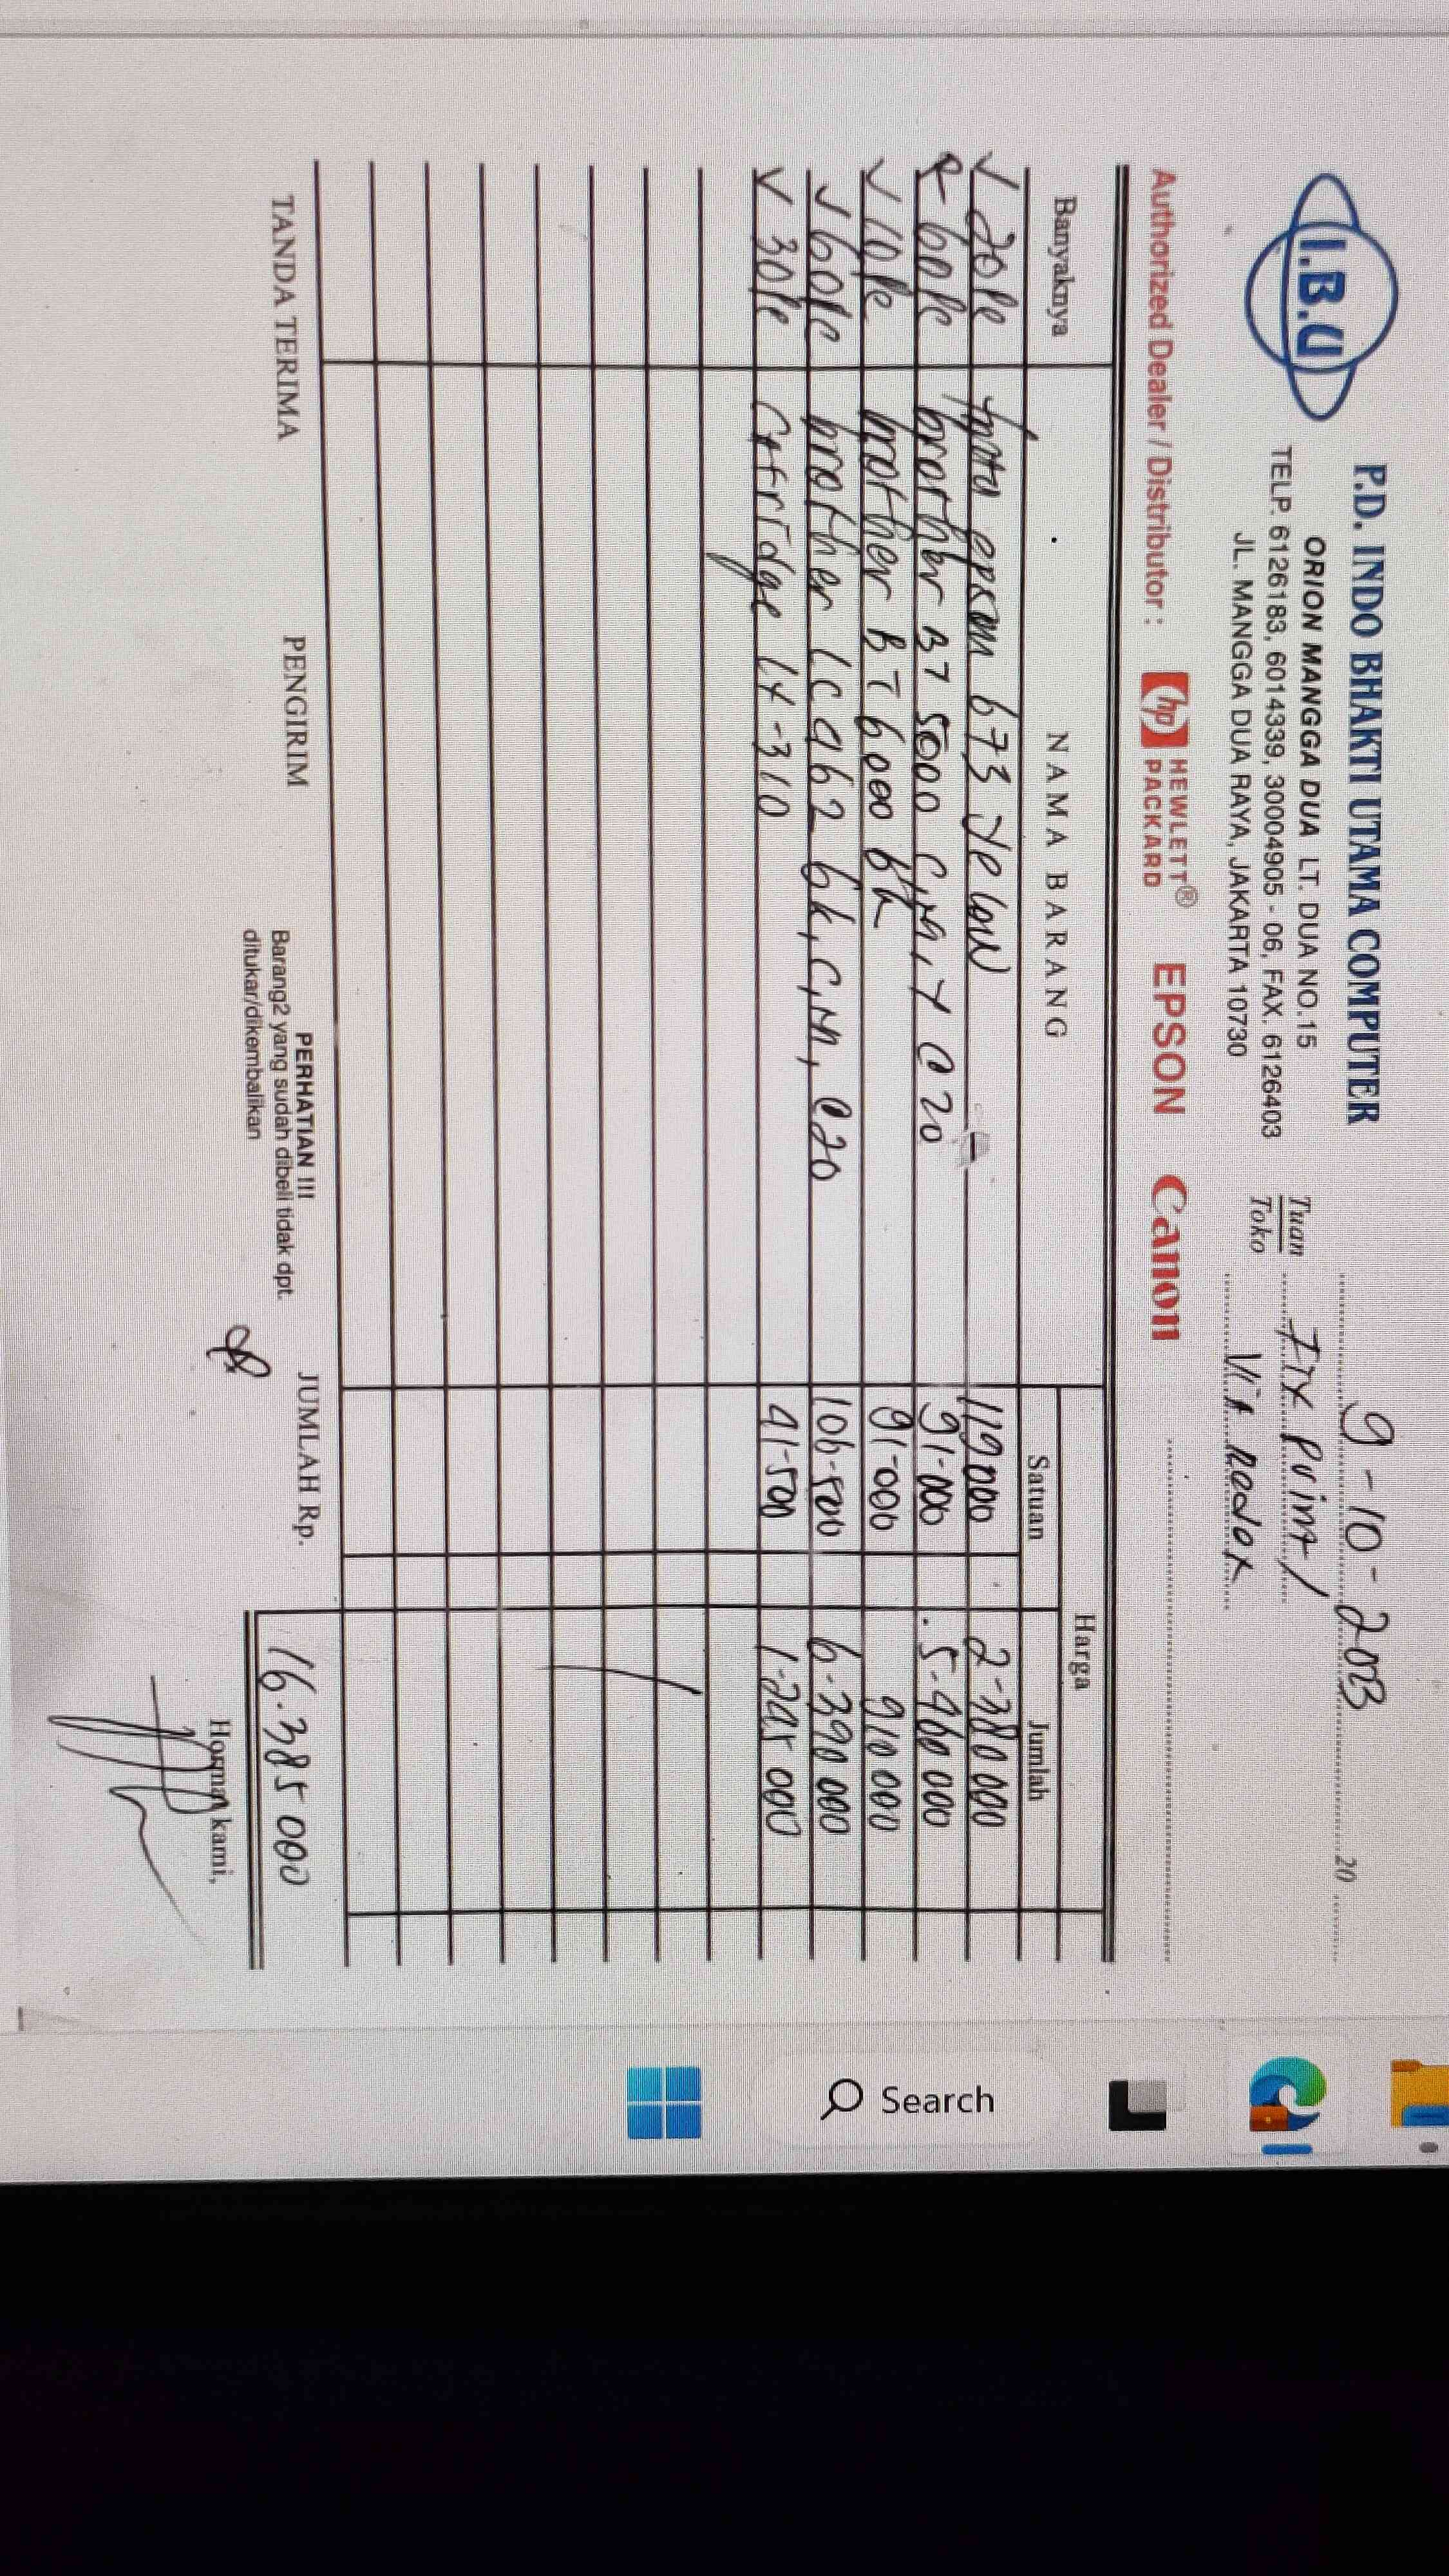 I.B.U
P.D. INDO BHAKTI UTAMA COMPUTER
ORION MANGGA DUA LT. DUA NO.15
TELP. 6126183, 6014339, 30004905 - 06, FAX. 6126403
JL. MANGGA DUA RAYA, JAKARTA 10730
9-10-2023 20
Tuan
Toko
Via
Authorized Dealer / Distributor : hp HEWLETT® PACKARD EPSON Canon
Banyaknya NAMA BARANG Harga
Satuan Jumlah
20 pc tinta epson 673 yelow 119000 2-380 000
60 pc brother BT 5000 C,M,Y @ 20 91-000 5-460 000
10 pc brother BT 6000 bk 91-000 910 000
60 pc brother LC 462 bk, C, M, @20 106-500 6-390 000
30 pc Catridge LX-310 41-500 1-245 000
TANDA TERIMA PENGIRIM PERHATIAN !!! JUMLAH Rp. 16.385 000
Barang2 yang sudah dibeli tidak dpt.
ditukar/dikembalikan
Hormat kami,
Search